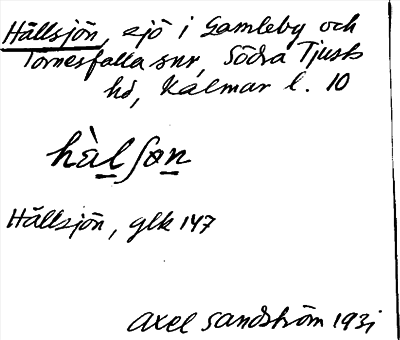 Hällsjön, sjö i Gamleby och
Törnesfalla snr, Södra Tjusts
hd, Kalmar l. 10
hàlʃøn
Hällsjön, glk 147
Axel Sandström 1931